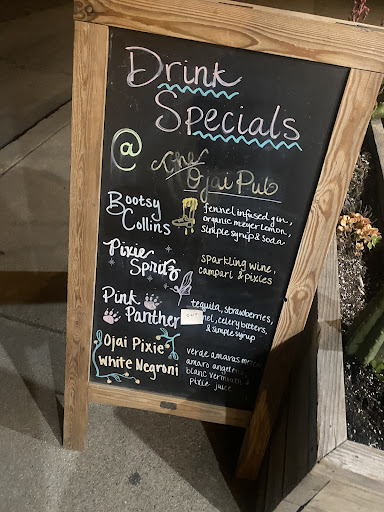 Drink
Specials
@ the
Ojai Pub
Bootsy
Collins
fennel infused gin,
organic meyer lemon,
simple syrup & soda
Pixie
Spritz
sparkling wine,
campari & pixies
Pink
Panther
OUT
tequila, strawberries,
celery bitters,
& simple syrup
Ojai Pixie
White Negroni
verde amaras
amaro angeleno
blanc vermouth
pixie juice